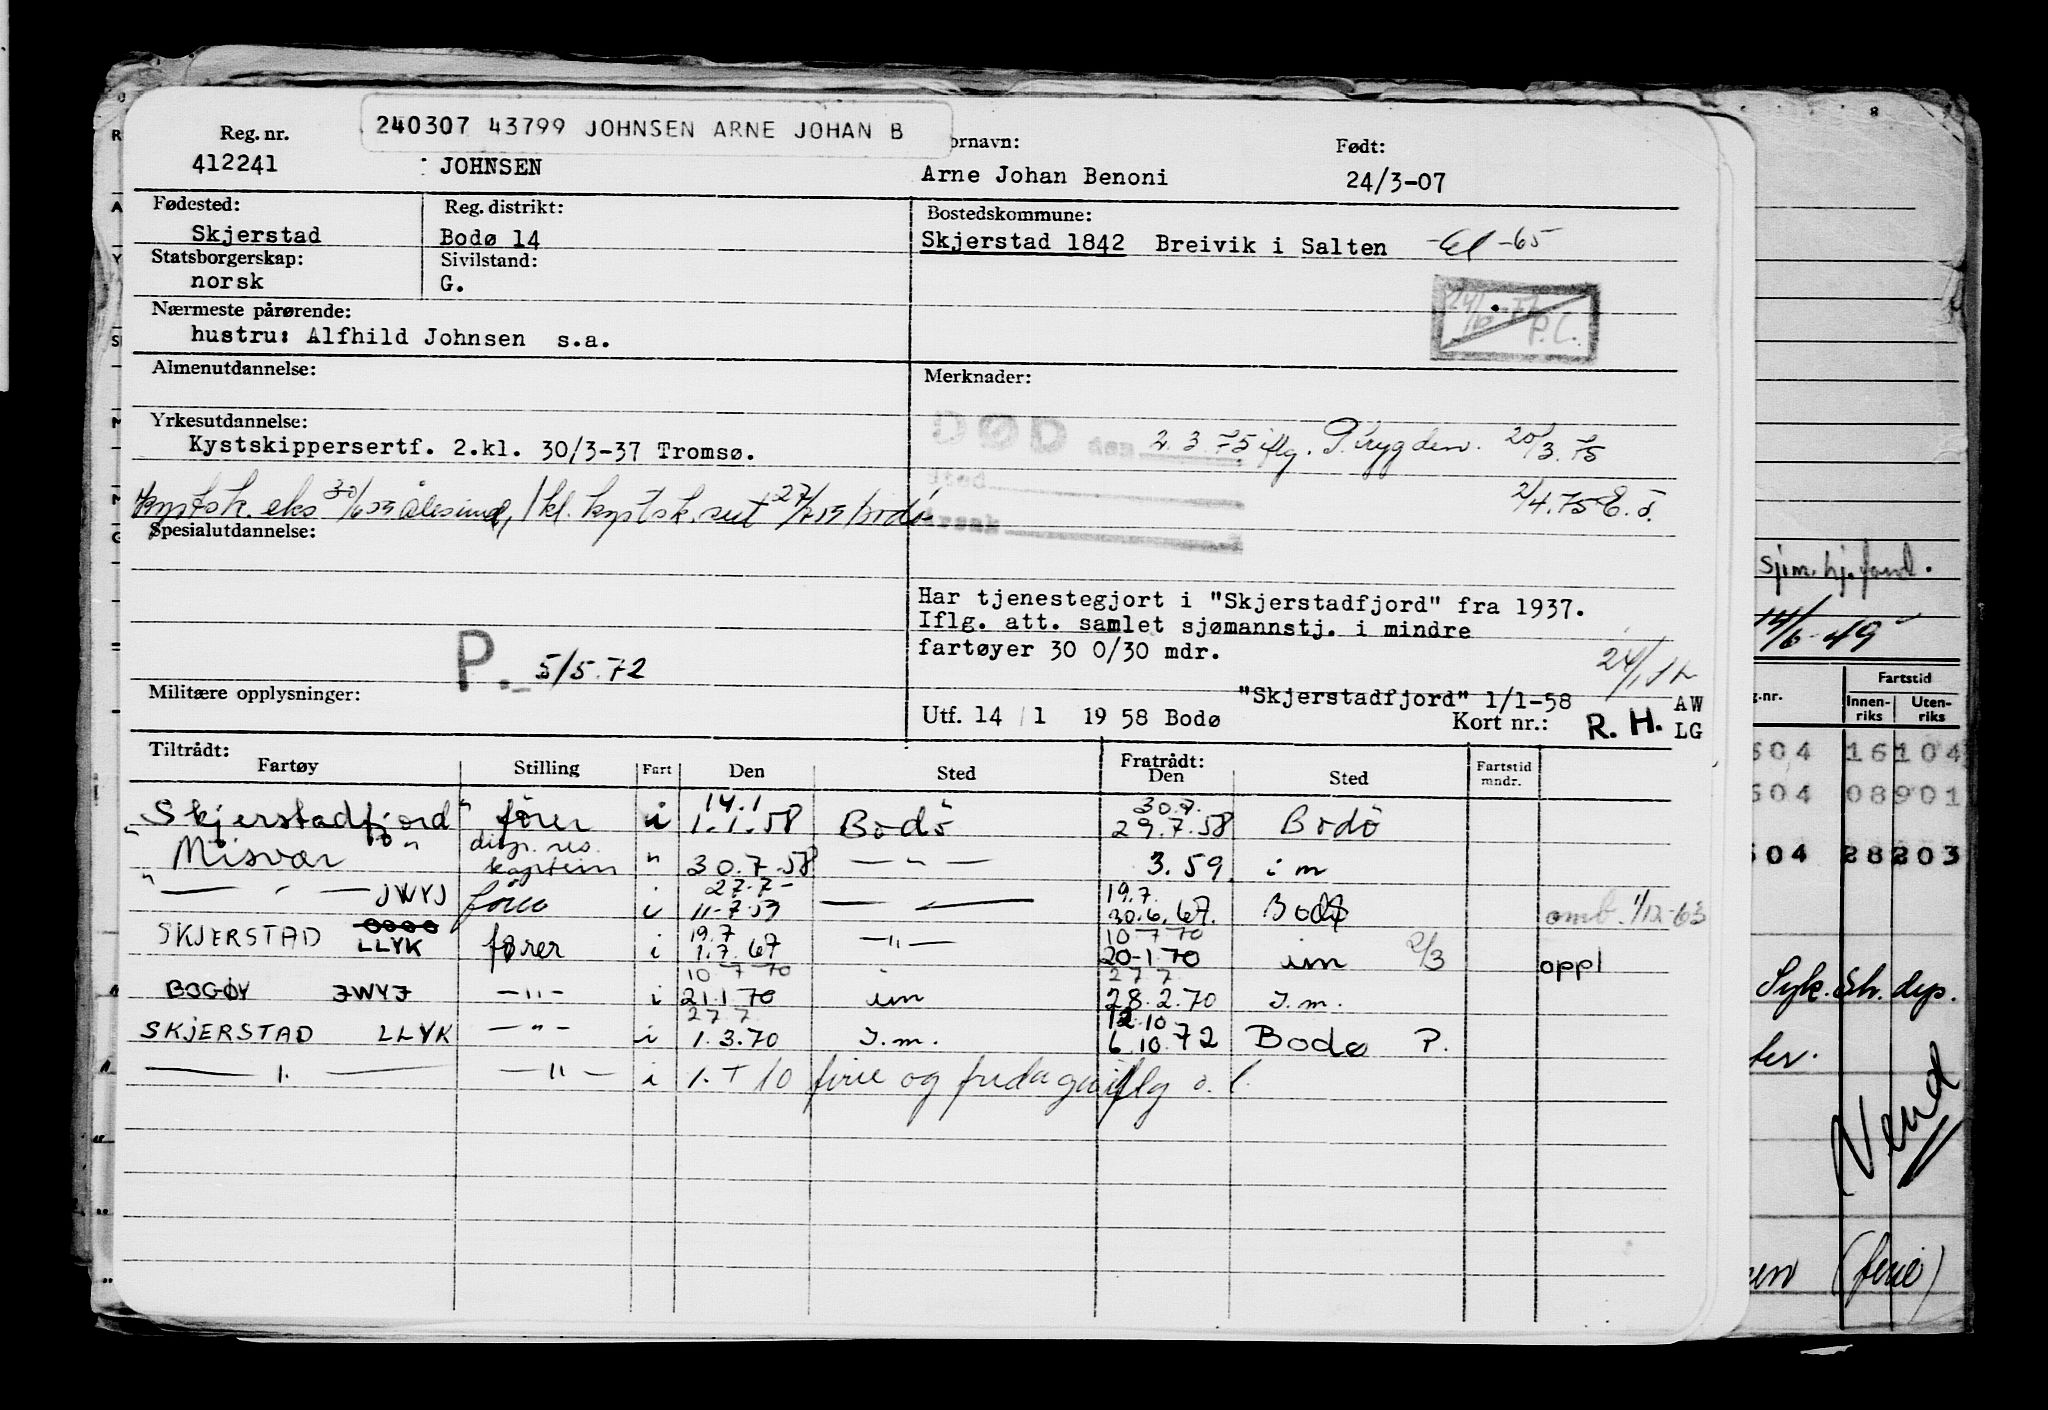 240307 43799 JOHNSEN ARNE JOHAN B
Reg. nr. ornavn: Født:
412241 JOHNSEN Arne Johan Benoni 24/3-07
Fødested: Reg. distrikt: Bostedskommune:
Skjerstad Bodø 14 Skjerstad 1842 Breivik i Salten -65
Statsborgerskap: Sivilstand:
norsk G.
Nærmeste pårørende:
hustru: Alfhild Johnsen s.a.
P.C.
Almenutdannelse: Merknader:
Yrkesutdannelse:
Kystskippersertf. 2.kl. 30/3-37 Tromsø.
DØD den 2.3.75 iflg. P.trygden. 20/3.75
sted
årsak
2/4.75 E.T.
kystsk. eks 30/6 59 Ålesund, 1 kl. kystsk. sert 27/7 59 Bodø
Spesialutdannelse:
Har tjenestegjort i "Skjerstadfjord" fra 1937.
Iflg. att. samlet sjømannstj. i mindre
fartøyer 30 0/30 mdr.
P. 5/5.72
Militære opplysninger:
"Skjerstadfjord" 1/1-58 AW
Utf. 14 / 1 19 58 Bodø Kort nr.: R. H. LG
Tiltrådt: Fratrådt:
Fartøy Stilling Fart Den Sted Den Sted Fartstid mndr.
14.1 30.7.
Skjerstadfjord" fører i 1.1.58 Bodö 29.7.58 Bodö
"Misvær" disp. res. kaptein " 30.7.58 — " — 3.59. i m
27.7- 19.7.
" — " — JWYJ fører i 11-7.59 — " — 30.6.67. Bodø omb. 1/12-63
19.7 10 7 70
SKJERSTAD LLYK fører i 1.7.67 —"— 20-1.70 im 2/3 oppl
10 7 70 27 7
BOGØY JWYJ —"— i 21.1.70 im 28.2.70 I.m.
27 7 12.10
SKJERSTAD LLYK —"— i 1.3.70 I.m. 6.10.72 Bodø P.
— " — —"— i 1. + 10 ferie og fridager iflg o. l.
sjøm. hj. fond.
14/6-49
g.nr. Fartstid
Innenriks Utenriks
504 16104
504 08901
504 28203
Syk. Str. dep.
Vend
(ferie)